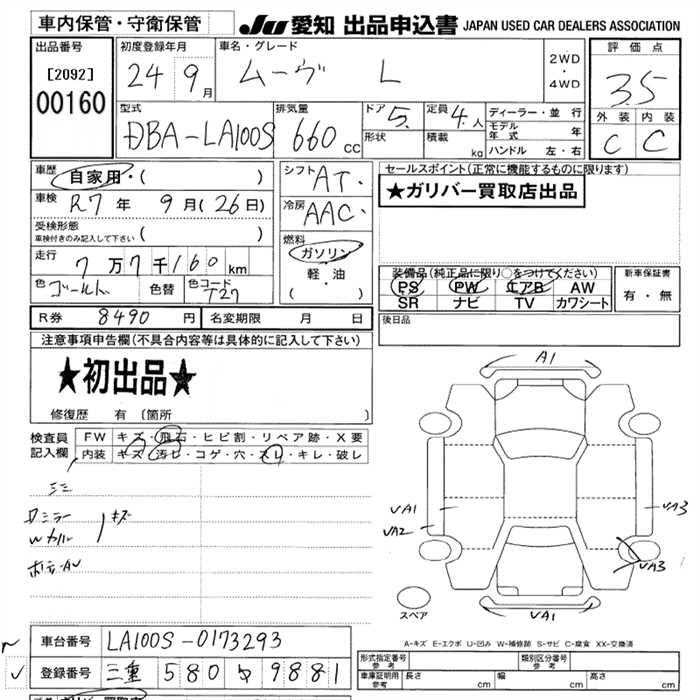 車内保管・守衛保管 JU 愛知 出品申込書 JAPAN USED CAR DEALERS ASSOCIATION
出品番号 [2092] 00160
初度登録年月 24年 9月
車名・グレード ムーヴ L
2WD・4WD
評価点 3.5
外装 C 内装 C
型式 DBA-LA100S
排気量 660cc
ドア 5 形状
定員 4人 積載 kg
ディーラー・並行
モデル年式 年
ハンドル 左・右
車歴 自家用・( )
車検 R7年 9月(26日)
受検形態 車検付きのみ記入して下さい ( )
走行 7万7千160km
色 ゴールド 色替 色コード T27
シフト AT
冷房 AAC
燃料 ガソリン・軽油 ( )
セールスポイント(正常に機能するものに限ります)
★ガリバー買取店出品
装備品(純正品に限り○をつけてください)
PS PW エアB AW
SR ナビ TV カワシート
新車保証書 有・無
後日品
R券 8490円 名変期限 月 日
注意事項申告欄(不具合内容等は具体的に記入して下さい)
★初出品★
修復歴 有 〔箇所 〕
検査員記入欄
FW キズ・飛石・ヒビ割・リペア跡・X要
内装 キズ・汚レ・コゲ・穴・スレ・キレ・破レ
ミラー
キズ
A1
VA1
VA2
VA3
VA3
VA1
スペア
A-キズ E-エクボ U-凹み W-補修跡 S-サビ C-腐食 XX-交換済
車台番号 LA100S-0173293
登録番号 三重 580 9881
形式指定番号 参考
類別区分番号 参考
車庫証明用 参考 長さ cm 幅 cm 高さ cm